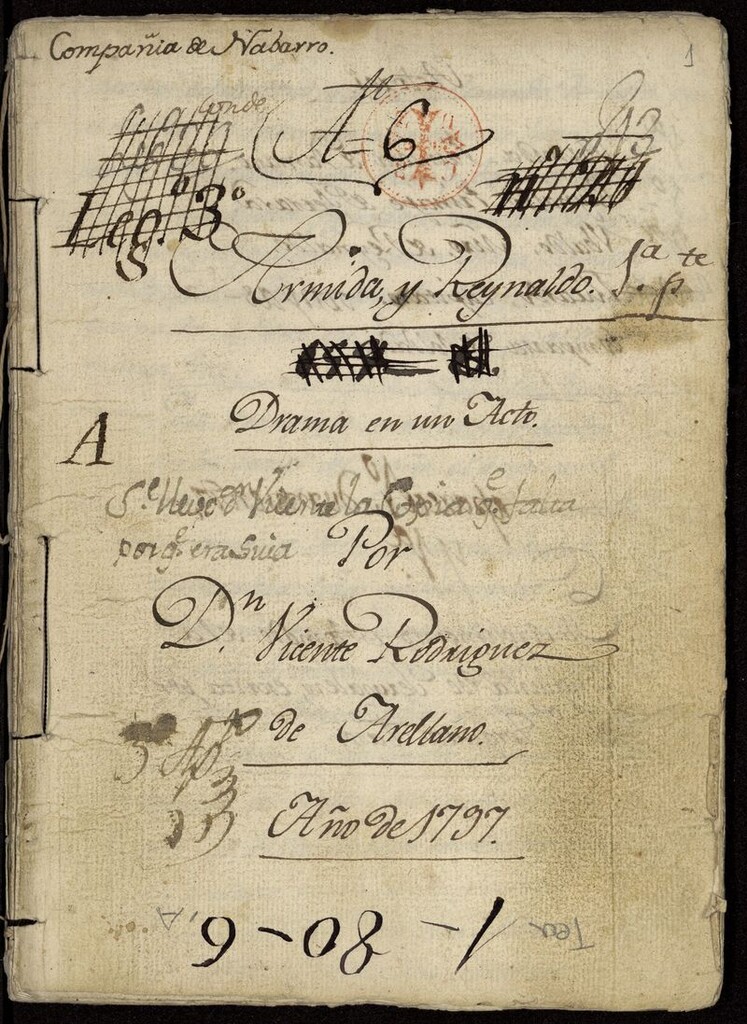 Compañia de Nabarro.
1
A=6
Leg.º 3º
Armida, y Reynaldo. 1ª p.te
Drama en un Acto.
A
Se llevo Dn Vicente la Copia q.e falta
porq.e era suia
Por
D.n Vicente Rodriguez
de Arellano.
Año de 1797.
Tea
1-80-6, A